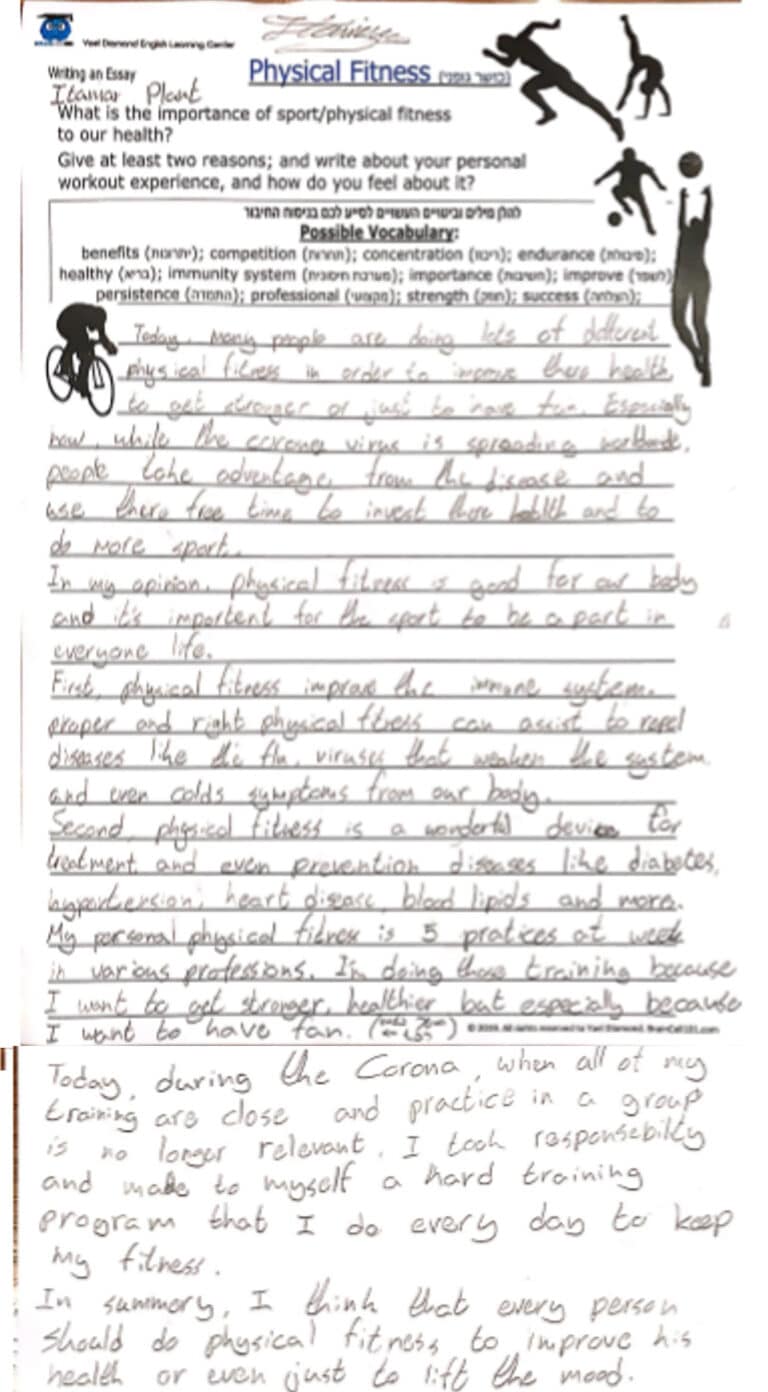 Yael Diamond English Learning Center
Writing an Essay
Physical Fitness (כושר גופני)
Itamar Plant
What is the importance of sport/physical fitness
to our health?
Give at least two reasons; and write about your personal
workout experience, and how do you feel about it?
להלן מילים וביטויים העשויים לסייע לכם בניסוח החיבור
Possible Vocabulary:
benefits; competition; concentration; endurance;
healthy (בריא); immunity system; importance (חשיבות); improve (לשפר)
persistence (התמדה); professional (מקצועי); strength (חוזק); success (הצלחה);
Today, Many people are doing lots of different
physical fitness in order to improve there health,
to get stronger or just to have fun. Especially
now, while the corona virus is spreading worldwide,
people take advantage from the disease and
use there free time to invest there health and to
do more sport.
In my opinion, physical fitness is good for our body
and it's importent for the sport to be a part in
everyone life.
First, physical fitness improve the immune system.
proper and right physical fitness can assist to repel
diseases like the flu, viruses that weaken the system
and even colds symptoms from our body.
Second, physical fitness is a wonderful device for
treatment and even prevention diseases like diabetes,
hypertension, heart disease, blood lipids and more.
My personal physical fitness is 5 pratices at week
in various professions. I'm doing those training because
I want to get stronger, healthier but especially because
I want to have fun.
© 2009. All rights reserved to Yael Diamond. BrainCall101.com
Today, during the Corona, when all of my
training are close and practice in a group
is no longer relevant, I took responsebilty
and made to myself a hard training
program that I do every day to keep
my fitness.
In summory, I think that every person
should do physical fitness to improve his
health or even just to lift the mood.